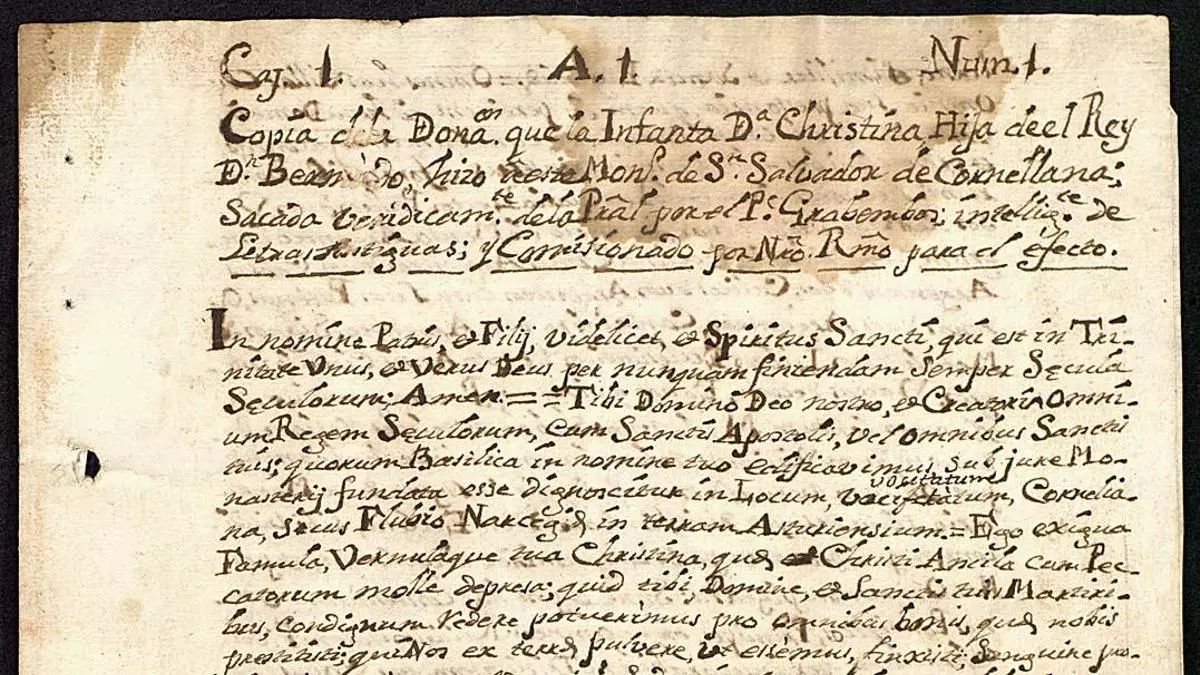 Caj. 1. A. 1. Num. 1.
Copia dela Donaon. que la Infanta D.a Christina, Hija deel Rey
D.n Bermudo, hizo à este Mon.o de S.n Salvador de Cornellana;
Sacada veridicam.te dela Prâl por el P.e Grabembos; intellig.te de
Letras Antiguas; y Comisionado por Nrô. Rmô para el efecto.
In nomine Patris, et Filij, videlicet, et Spiritus Sancti, qui est in Tri-
nitate Unus, et Verus Deus per nunquam finiendam semper Sęcula
Sęculorum; Amen. == Tibi Domino Deo nostro, et Creatoris omni-
um Regem Sęculorum, cum Sanctis Apostolis, vel omnibus Sanctis
tuis; quorum Basilica in nomine tuo edificavimus, sub jure Mo-
nasterij fundata esse dignoscitur in Locum, vocitatum, Cornelia-
na, secus Flubio Narcegę in terram Asturiensium. = Ego exigua
Famula, Vernulaque tua Christina, quę et Christi Ancila cum Pec-
catorum molle depresa; quid tibi, Domine, et Sanctis tuis Martiri-
bus, condignum redere potuerimus pro omnibus bonis, quę nobis
prestitisti; qui Nos ex terrę pulvere, ut essemus, finxisti; Sanguine pro-